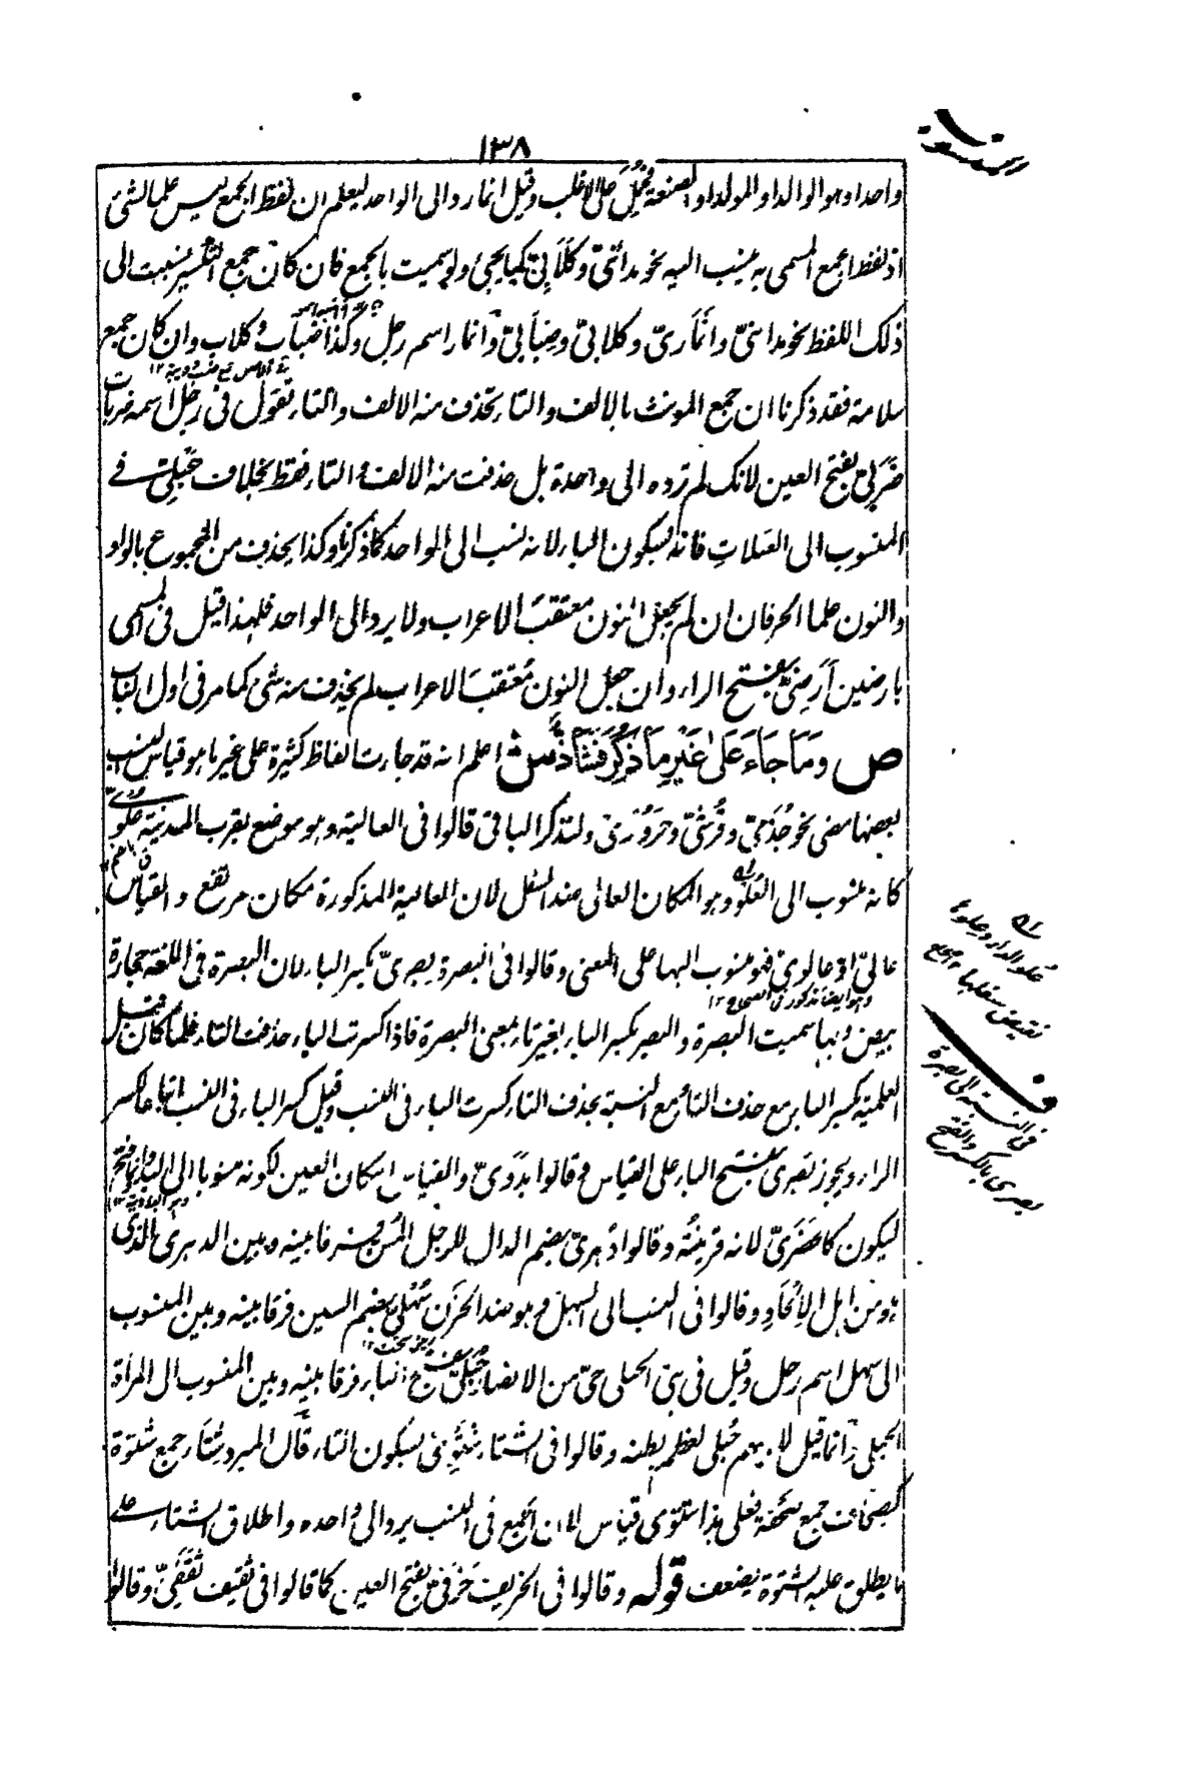 ١٣٨
واحدا وهو الوالد او المولد او الصنعة فحمل على الاغلب وقيل انما رد الى الواحد ليعلم ان لفظ الجمع ليس علما لشئ
اذ لفظ الجمع المسمى به ينسب اليه نحو مدائنىّ وكَلَابىّ كما يجئ ولو سميت بالجمع فان كان جمع التكسير نسبت الى
ذلك اللفظ نحو مدائنىّ وانمارىّ وكلابىّ وضِبابىّ وانمار اسم رجل وكذا ضباب وكلاب وان كان جمع
سلامة فقد ذكرنا ان جمع المونث بالالف والتاء تحذف منه الالف والتاء تقول فى رجل اسمه ضربات
ضَرَبىّ بفتح العين لانك لم ترده الى واحدة بل حذفت منه الالف والتاء فقط بخلاف عَبْلِىّ فے
المنسوب الى العبلاتِ فانه بسكون الباء لانه نسب الى الواحد كما ذكرنا وكذا يحذف من المجموع بالواو
والنون علما الحرفان ان لم يجعل النون معتقبَ الاعراب ولا يرد الى الواحد فلهذا قيل فى المسمى
بارضين اَرَضِىّ بفتح الراء وان جعل النون مُعتقبَ الاعراب لم يحذف منه شئ كما مر فى اول الكتاب
ص ومَا جَاءَ عَلىٰ غَيْرِ مَا ذُكِرَ فَشَاذٌّ ش اعلم انه قد جاءت الفاظ كثيرة على غير ما هو قياس النسب
بعضها مضى نحو جُذَمىّ وقُرَشىّ وحَرُورىّ ولنذكر الباقى قالوا فى العالية وهو موضع بقرب المدينة عُلوىّ
كانه منسوب الى العُلو وهو المكان العالى ضد السفل لان العالية المذكورة مكان مرتفع والقياس
عالىّ او عالوىّ فهو منسوب اليها على المعنى وقالوا فى البصرة بِصرىّ بكسر الباء لان البصرة فى اللغة حجارة
وهو ايضا مذكور فى الصحاح ١٢
بيض وبها سميت البصرة والبصر بكسر الباء بغير تاء بمعنى البصرة فاذا كسرت الباء حذفت التاء فلما كان قبل
العلمية بكسر الباء مع حذف التاء ومع النسبة بحذف التاء كسرت الباء فى النسب وقيل كسر الباء فى النسب اتباعا لكسر
الراء ويجوز بَصرى بفتح الباء على القياس وقالوا بَدَوىّ والقياس اسكان العين لكونه منسوبا الى البدو وانما فتح
ليكون كالحَضَرىّ لانه قرينُه وقالوا دُهرىّ بضم الدال للرجل المسن فرقا بينه وبين الدهرى الذى
هو من اهل الالحاد وقالوا فى النسب الى السهل وهو ضد الحَزَن سُهْلىّ بضم السين فرقا بينه وبين المنسوب
الى سهل اسم رجل وقيل فى بنى الحبلى حىّ من الانصار حُبَلىّ بفتح الباء فرقا بينه وبين المنسوب الى المرأة
الحبلى وانما قيل لابيهم حُبلى لعظم بطنه وقالوا فى الشتاء شَتْوىّ بسكون التاء قال المبرد شتاء جمع شَتوَة
كصحاف جمع صَحْفة فعلى هذا شتوى قياس لان الجمع فى النسب يرد الى واحده واطلاق الشتاء على
ما يطلق عليه الشتوة يضعف قوله وقالوا فى الخريف خَرَفىّ بفتح العين كما قالوا فى ثقيف ثَقَفِىّ وقالوا
علو الدار وعلوها
نقيض سفلها ١٢ صحاح
ف
فى النسبة الى البصرة
بصرى بالكسر والفتح